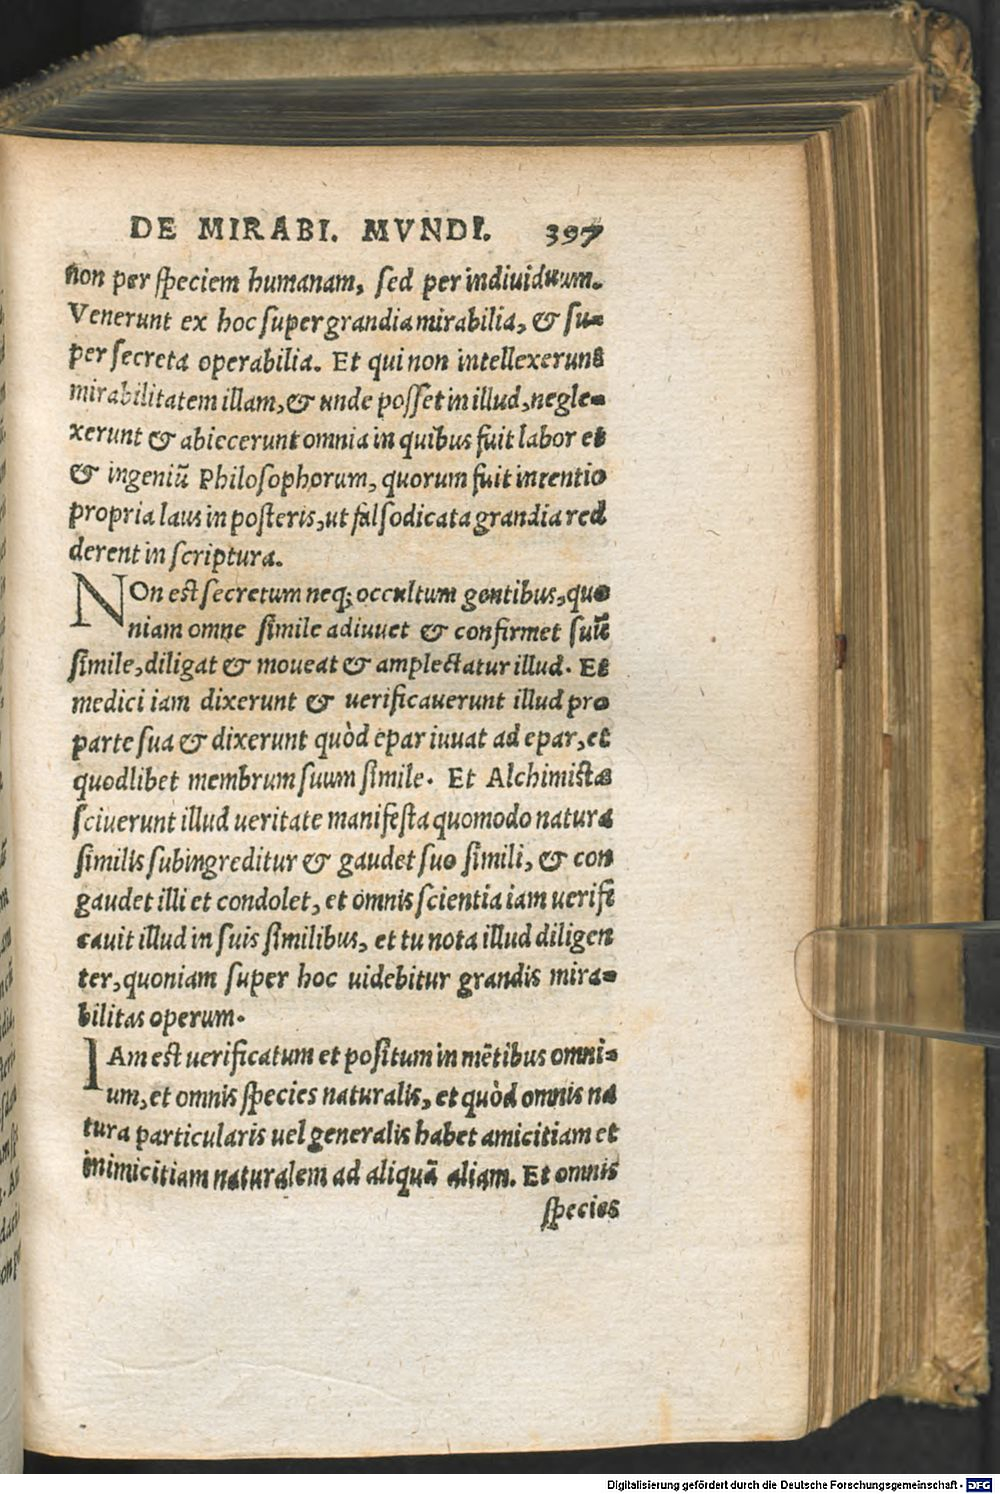 DE MIRABI. MVNDI. 397
non per speciem humanam, sed per indiuiduum.
Venerunt ex hoc super grandia mirabilia, & su-
per secreta operabilia. Et qui non intellexerunt
mirabilitatem illam, & unde posset in illud, negle-
xerunt & abiecerunt omnia in quibus fuit labor et
& ingeniũ Philosophorum, quorum fuit intentio
propria laus in posteris, ut falso dicata grandia red
derent in scriptura.
NOn est secretum neq; occultum gentibus, quo
niam omne simile adiuuet & confirmet suũ
simile, diligat & moueat & amplectatur illud. Et
medici iam dixerunt & uerificauerunt illud pro
parte sua & dixerunt quòd epar iuuat ad epar, et
quodlibet membrum suum simile. Et Alchimistæ
sciuerunt illud ueritate manifesta quomodo natura
similis subingreditur & gaudet suo simili, & con
gaudet illi et condolet, et omnis scientia iam uerifi
cauit illud in suis similibus, et tu nota illud diligen
ter, quoniam super hoc uidebitur grandis mira-
bilitas operum.
IAm est uerificatum et positum in mẽtibus omni-
um, et omnis species naturalis, et quòd omnis na
tura particularis uel generalis habet amicitiam et
inimicitiam naturalem ad aliquã aliam. Et omnis
species
Digitalisierung gefördert durch die Deutsche Forschungsgemeinschaft - DFG